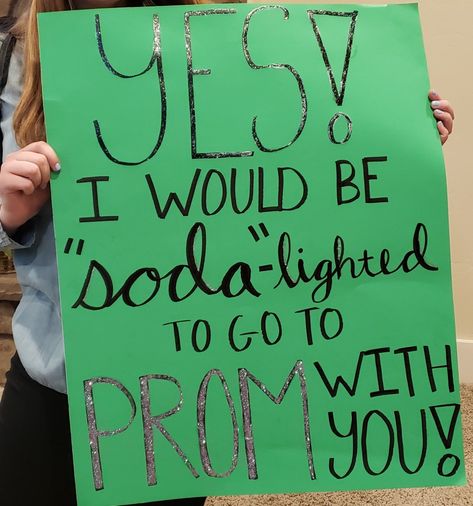 YES!
I WOULD BE
"soda"-lighted
TO GO TO
PROM WITH
YOU!